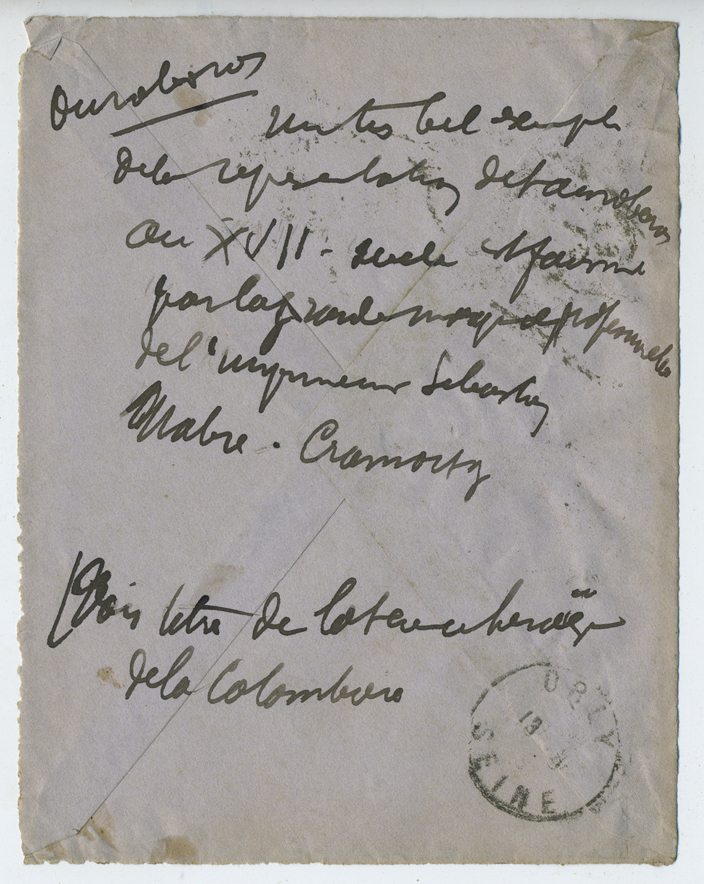 Ouroboros
Un très bel exemple
de la représentation de l'ouroboros
au XVII. siècle est fourni
par la grande marque professionnelle
de l'imprimeur Sébastien
Mabre. Cramoisy
(Voir titre de la science héroïque
de la Colombière
ORLY
SEINE